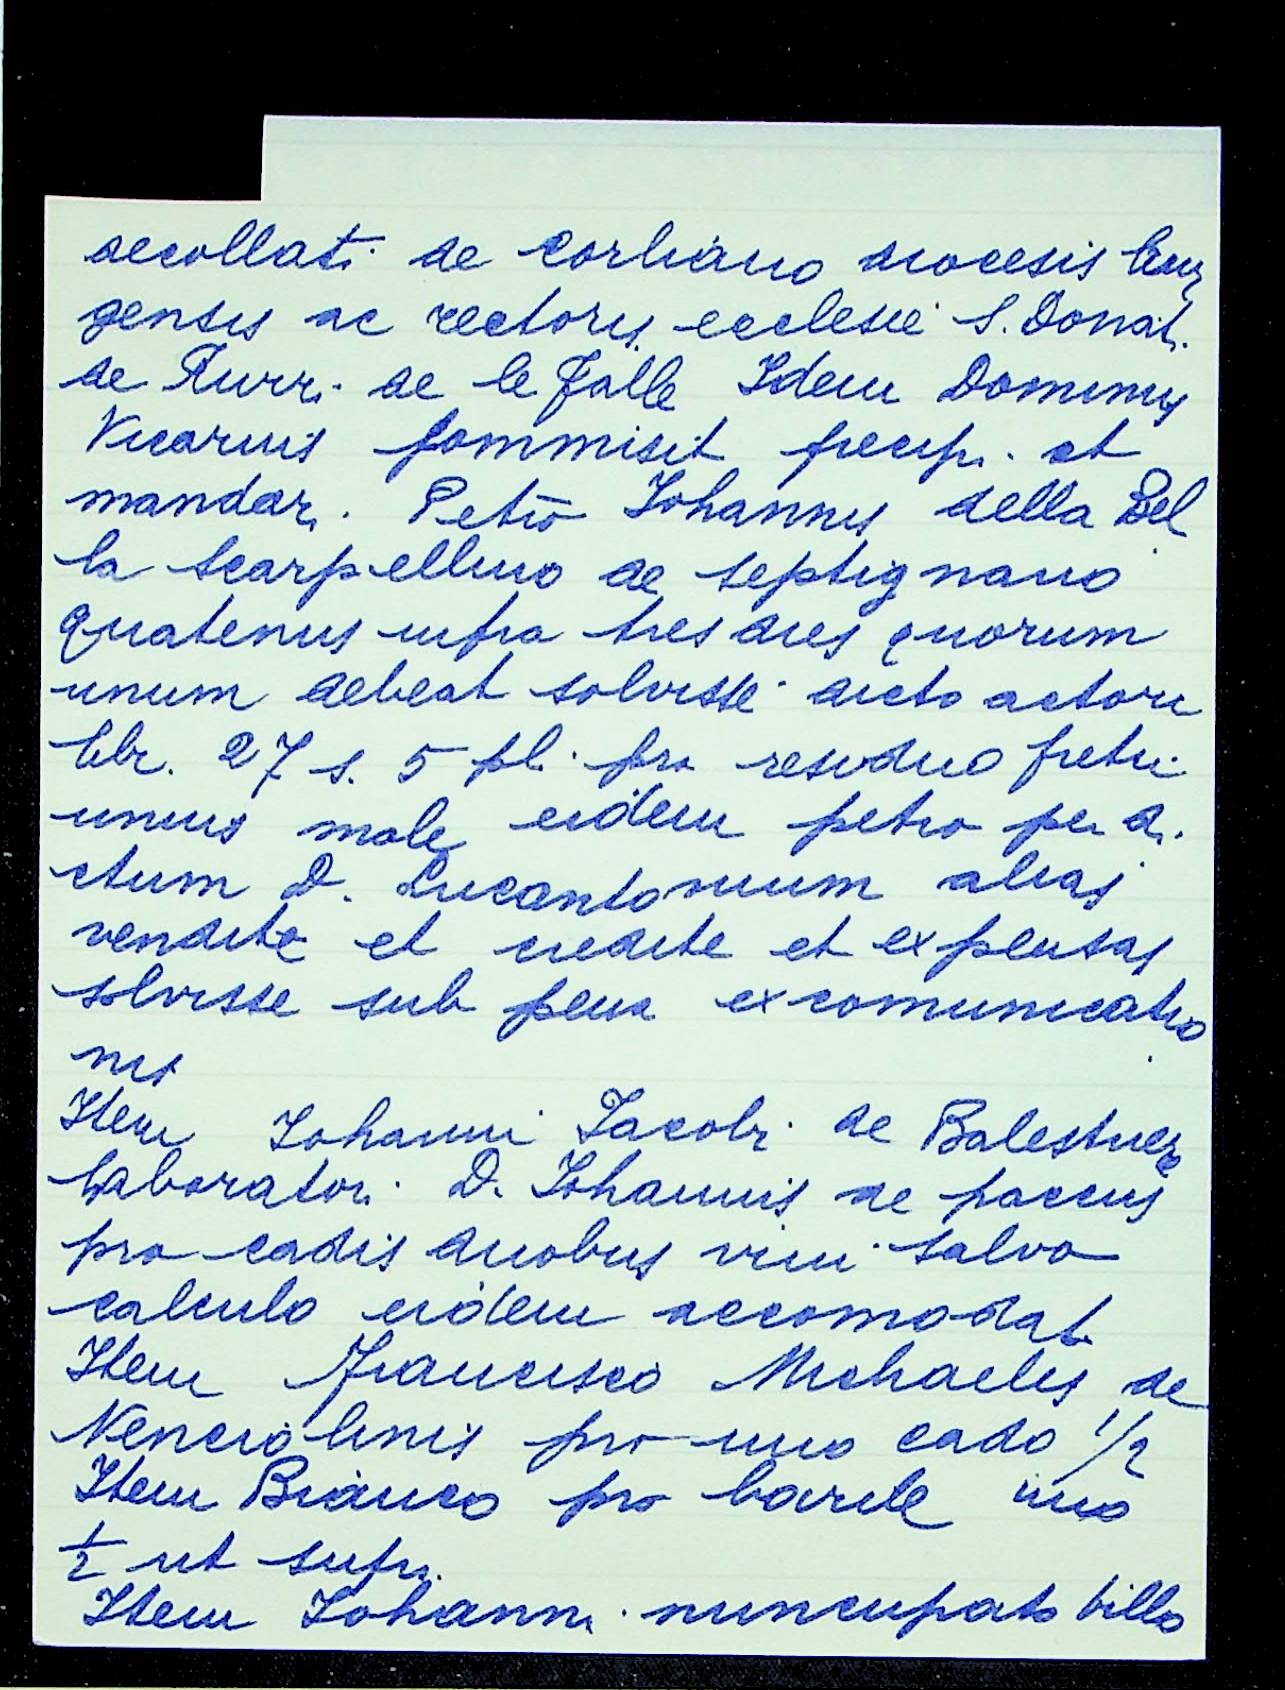 decollati de Corliano diocesis Luny
gensis ac rectoris ecclesie S. Donati
de Turri de le Falle Idem Dominus
Vicarius commisit precip. et
mandar. Petro Johannis della Bel
la scarpellino de septignano
quatenus infra tres dies quorum
unum debeat solvisse dicto actori
libr. 27 s. 5 pl. pro residuo pretii
unius mole eidem petro per di
ctum D. Lucantonium alias
vendite et credite et expensas
solvisse sub pena excomunicatio
nis
Item Johanni Jacobi de Balestrier
laboratori D. Johannis de paccus
pro cadis duobus vini salvo
calculo eidem accomodat.
Item Francisco Michaelis de
Nenciolinis pro uno cado 1/2
Item Bianco pro barile uno
1/2 ut supr.
Item Johanni nuncupato billo